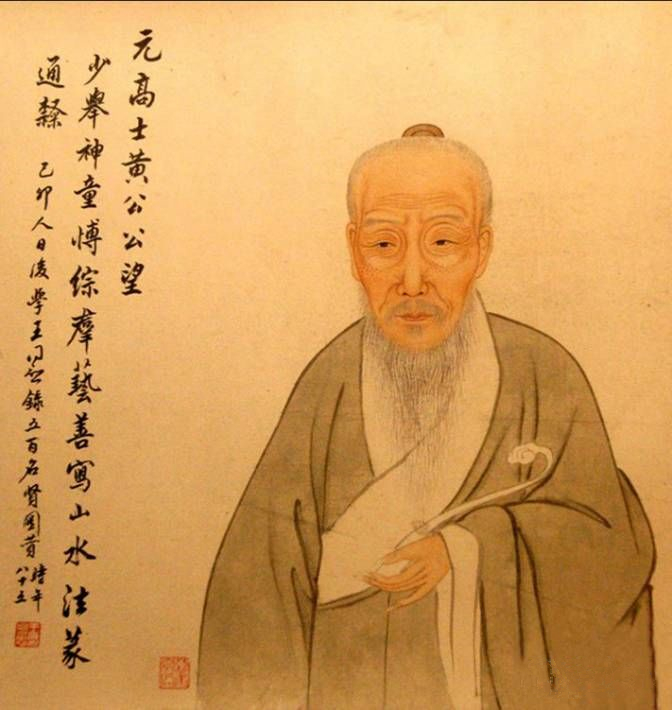 元高士黄公公望
少舉神童愽綜羣藝善寫山水法篆
通隸 己卯人日後學王同愈錄五百名賢圖贊
時年
八十五